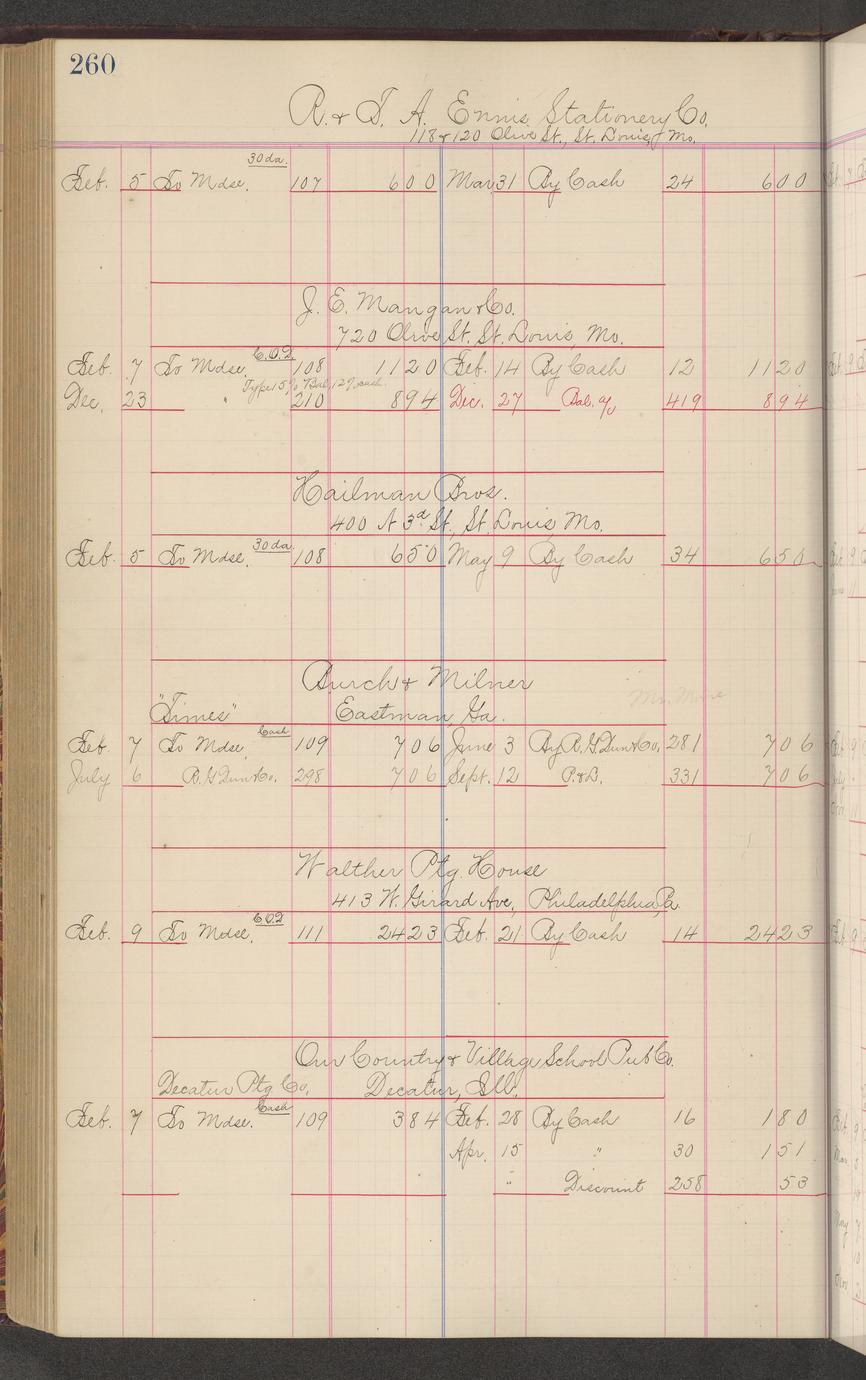 260
R. & T. A. Ennis Stationery Co.
118 & 120 Olive St., St. Louis, Mo.
30 da.
Feb. 5 To Mdse. 107 600 Mar 31 By Cash 24 600
J. E. Mangan & Co.
720 Olive St. St. Louis, Mo.
C.O.D.
Feb. 7 To Mdse. 108 1120 Feb. 14 By Cash 12 1120
Type 15% Bal. 12% cash
Dec. 23 " 210 894 Dec. 27 Bal. a/c 419 894
Hailman Bros.
400 N 3d St., St. Louis, Mo.
30 da.
Feb. 5 To Mdse. 108 650 May 9 By Cash 34 650
Burch & Milner
"Times" Eastman, Ga.
Cash
Feb. 7 To Mdse. 109 706 June 3 By R. G. Dun & Co. 281 706
July 6 R. G. Dun & Co. 298 706 Sept. 12 P. & L. 331 706
Walther Ptg. House
413 W. Girard Ave., Philadelphia, Pa.
C.O.D
Feb. 9 To Mdse. 111 2423 Feb. 21 By Cash 14 2423
Our Country & Village School Pub Co.
Decatur Ptg Co. Decatur, Ill.
Cash
Feb. 7 To Mdse. 109 384 Feb. 28 By Cash 16 180
Apr. 15 " 30 151
" Discount 258 53